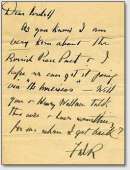 Dear Cordell
As you know I am
very keen about the
Roerich Peace Pact &
hope we can get it going
via "the Americas" — Will
you & Henry Wallace talk
this over & have something
for me when I get back?
FDR